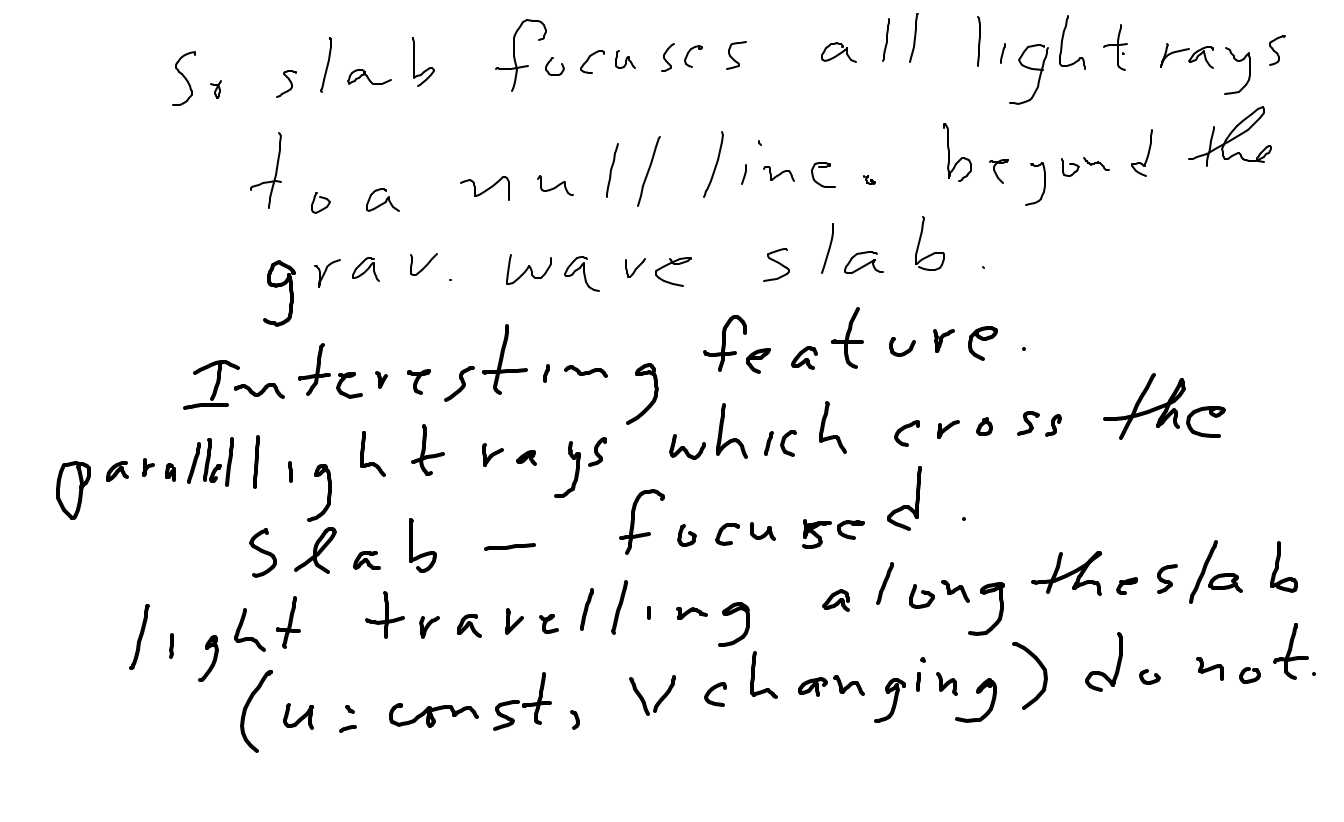 So slab focuses all light rays
to a null line. beyond the
grav. wave slab.
Interesting feature.
parallel light rays which cross the
slab — focused.
light travelling along the slab
(u = const, V changing) do not.